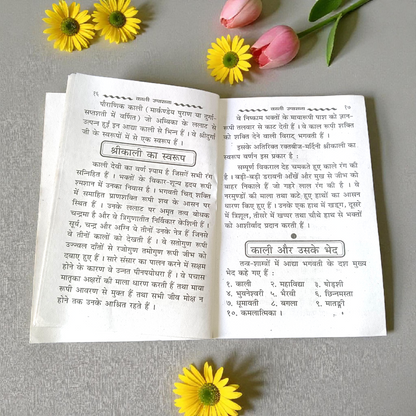 १६ काली उपासना
पौराणिक काली (मार्कण्डेय पुराण या दुर्गा-
सप्तशती में वर्णित) जो अम्बिका के ललाट से
उत्पन्न हुई इन आद्या काली से भिन्न हैं । वे श्रीदुर्गा
जी के स्वरूपों में से एक स्वरूप हैं ।
श्रीकाली का स्वरूप
काली देवी का वर्ण श्याम है जिसमें सभी रंग
सन्निहित हैं । भक्तों के विकार-शून्य हृदय रूपी
श्मशान में उनका निवास है । भगवती चित् शक्ति
में समाहित प्राणशक्ति रूपी शव के आसन पर
स्थित हैं । उनके ललाट पर अमृत तत्व बोधक
चन्द्रमा है और वे त्रिगुणातीत निर्विकार केशिनी हैं ।
सूर्य, चन्द्र और अग्नि ये तीनों उनके नेत्र हैं जिनसे
वे तीनों कालों को देखती हैं । वे सतोगुण रूपी
उज्ज्वल दाँतों से रजोगुण तमोगुण रूपी जीभ को
दबाए हुए हैं । सारे संसार का पालन करने में सक्षम
होने के कारण वे उन्नत पीनपयोधरा हैं । वे पचास
मातृका अक्षरों की माला धारण करती हैं तथा माया
रूपी आवरण से मुक्त हैं तथा सभी जीव मोक्ष न
होने तक उनके आश्रित रहते हैं ।
काली उपासना १७
वे निष्काम भक्तों के मायारूपी पाश को ज्ञान-
रूपी तलवार से काट देती हैं । वे काल रूपी शक्ति
को शक्ति देने वाली विराट् भगवती हैं ।
इसके अतिरिक्त रक्तबीज-मर्दिनी श्रीकाली का
स्वरूप वर्णन इस प्रकार है :
सम्पूर्ण विकराल देह चमकते हुए काले रंग की
है । बड़ी-बड़ी डरावनी आँखें और मुख से जीभ को
बाहर निकाले हैं जो गहरे लाल रंग की है । वे
नरमुण्डों की माला तथा कटे हुए हाथों का आसन
धारण किए हुए हैं । उनके एक हाथ में खड्ग, दूसरे
में त्रिशूल, तीसरे में खप्पर तथा चौथे हाथ से भक्तों
को आशीर्वाद प्रदान करती हैं ।
काली और उसके भेद
तन्त्र-शास्त्रों में आद्या भगवती के दश मुख्य
भेद कहे गए हैं :
१. काली २. महाविद्या ३. षोड़शी
४. भुवनेश्वरी ५. भैरवी ६. छिन्नमस्ता
७. धूमावती ८. बगला ९. मातङ्गी
१०. कमलात्मिका ।